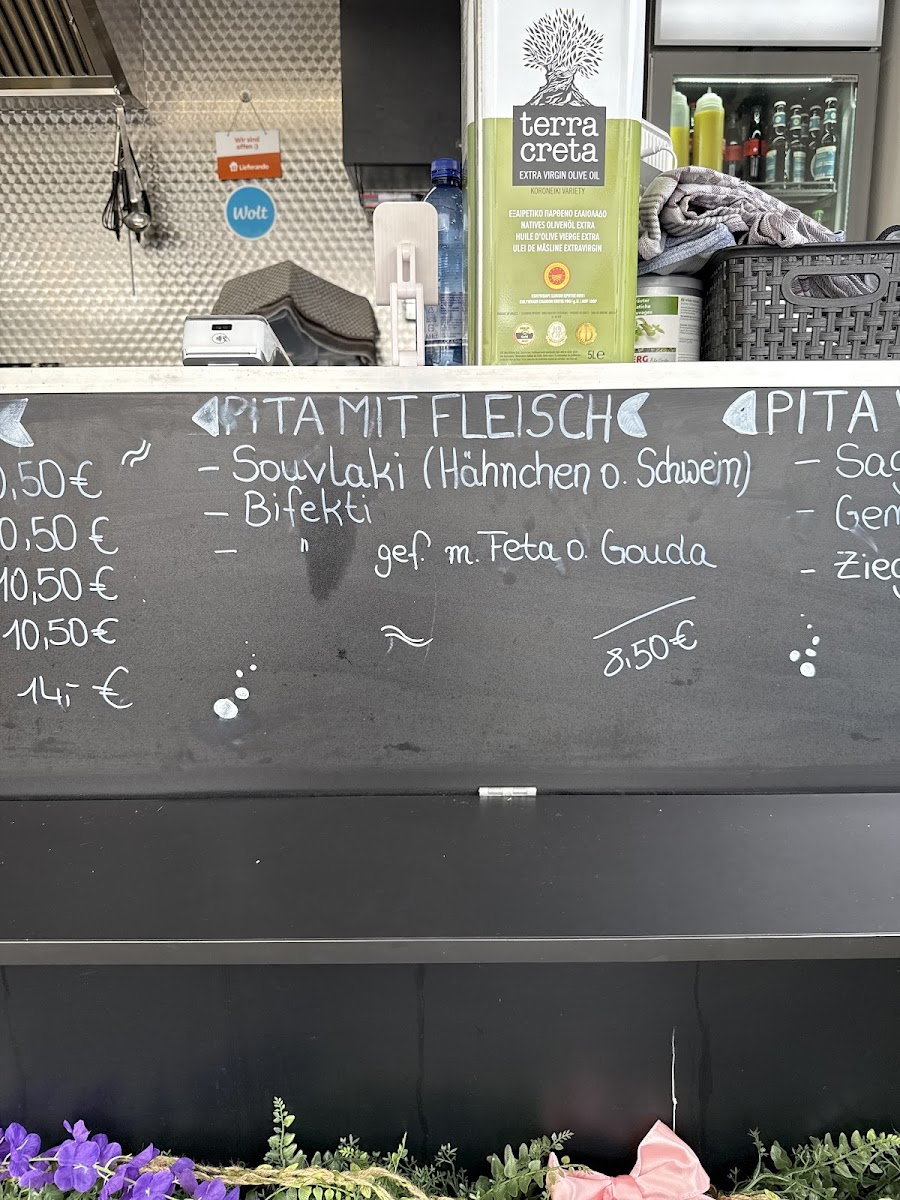 Wir sind
offen :)
Lieferando
Wolt
terra
creta
EXTRA VIRGIN OLIVE OIL
KORONEIKI VARIETY
ΕΞΑΙΡΕΤΙΚΟ ΠΑΡΘΕΝΟ ΕΛΑΙΟΛΑΔΟ
NATIVES OLIVENÖL EXTRA
HUILE D'OLIVE VIERGE EXTRA
ULEI DE MĂSLINE EXTRAVIRGIN
5L e
0,50 €
0,50 €
10,50 €
10,50 €
14,- €
PITA MIT FLEISCH
- Souvlaki (Hähnchen o. Schwein)
- Bifekti
- " gef. m. Feta o. Gouda
8,50 €
PITA
- Sag
- Gem
- Zieg